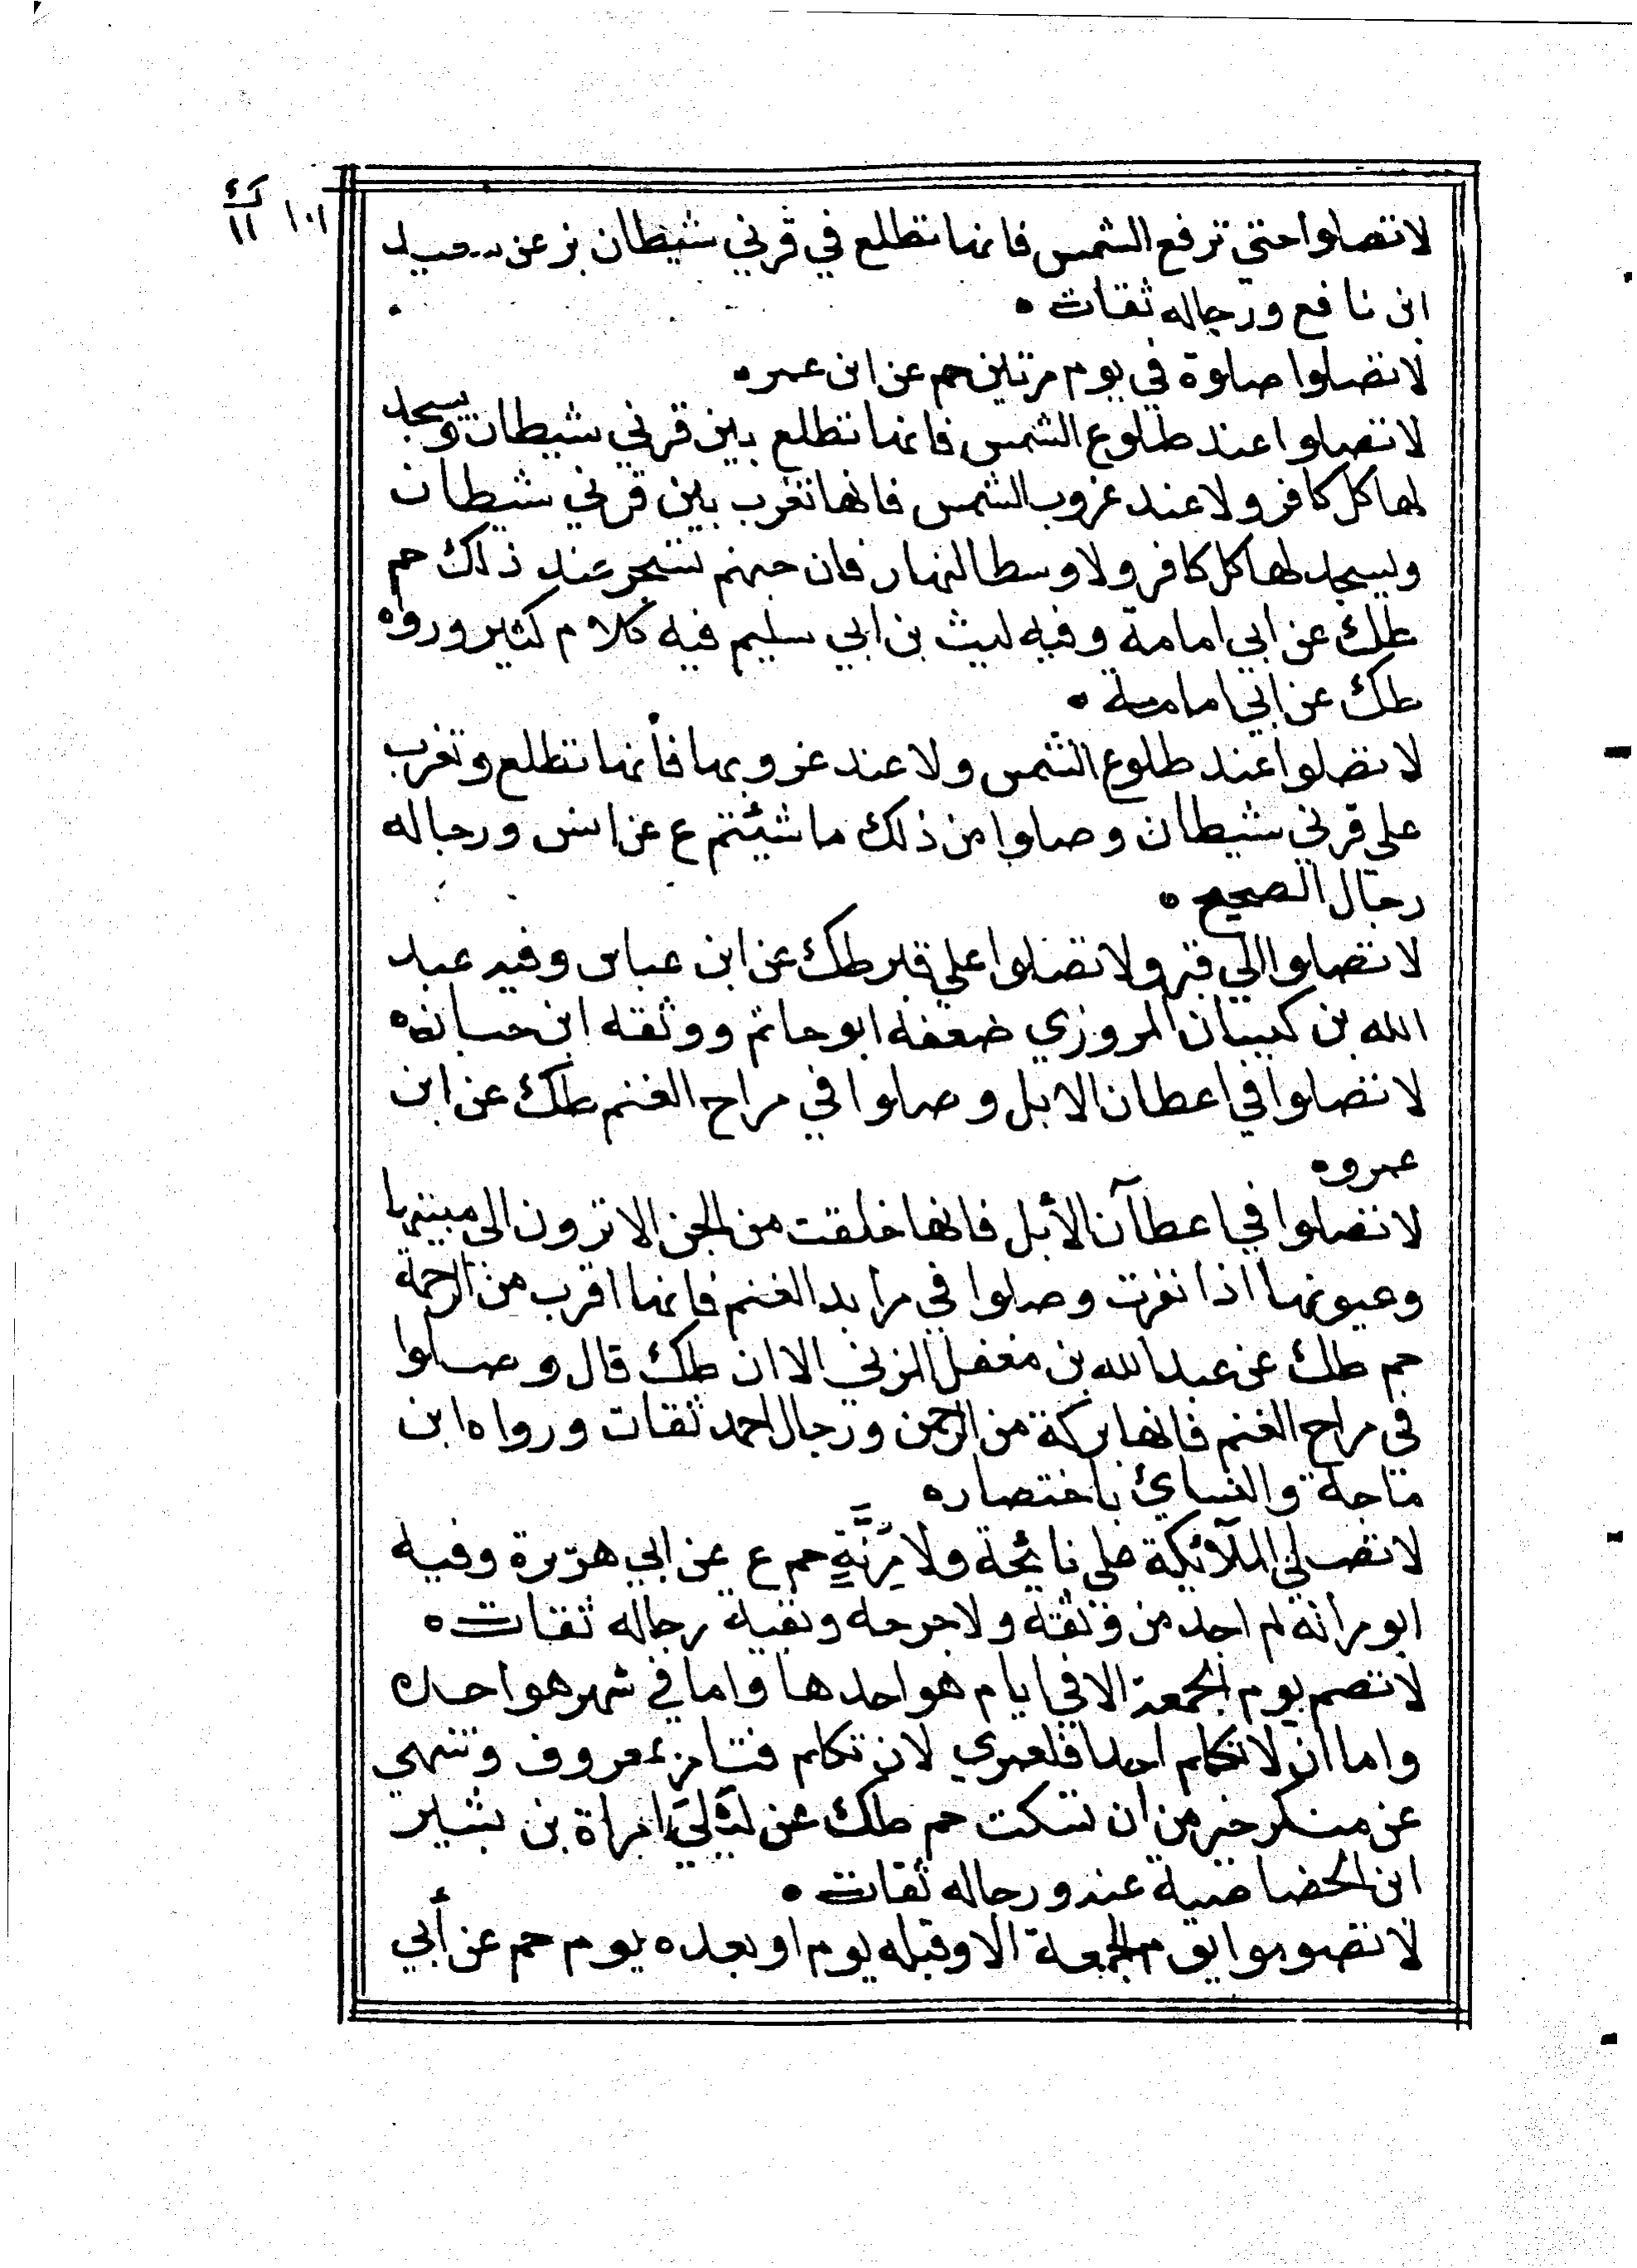 ١٠١ ك ١١
لا تصلوا حتى ترفع الشمس فانها تطلع في قرني شيطان بز عن سعيد
ابن نافع ورجاله ثقات ه
لا تصلوا صلوة في يوم مرتين حم عن ابن عمر ه
لا تصلوا عند طلوع الشمس فانها تطلع بين قرني شيطان ويسجد
لها كل كافر ولا عند غروب الشمس فانها تغرب بين قرني شيطان
ويسجد لها كل كافر ولا وسط النهار فان جهنم تسجر عند ذلك حم
طك عن ابي امامة وفيه ليث بن ابي سليم فيه كلام كثير ورواه
طك عن ابي امامة ه
لا تصلوا عند طلوع الشمس ولا عند غروبها فانها تطلع وتغرب
على قرني شيطان وصلوا من ذلك ما شيئتم ع عن انس ورجاله
رجال الصحيح ه
لا تصلوا الي قبر ولا تصلوا علي قبر طك عن ابن عباس وفيه عبد
الله بن كيسان المروزي ضعفه ابو حاتم ووثقه ابن حبان ه
لا تصلوا في اعطان الابل وصلوا في مراح الغنم طك عن ابن
عمرو ه
لا تصلوا في اعطآن الأبل فانها خلقت من الجن الا ترون الى هيئتها
وعيونها اذا نفرت وصلوا في مرابد الغنم فانها اقرب من الرحمة
حم طك عن عبد الله بن مغفل المزني الا ان طك قال وصلوا
في مراح الغنم فانها بركة من الرحمن ورجال احمد ثقات ورواه ابن
ماجة والنسائ باختصار ه
لا تصلي الملآئيكة على نائحة ولا مُرِنَّةٍ حم ع عن ابي هريرة وفيه
ابو مرانه لم اجد من وثقه ولا جرحه وبقية رجاله ثقات ه
لا تصم يوم الجمعة الا في ايام هو احدها واما في شهر هو احده
واما ان لا تكلم احدا فلعمري لان تكلم فتامر بمعروف وتنهي
عن منكر خير من ان تسكت حم طك عن ليلي امراة بن بشير
ابن الخصاصية عنه ورجاله ثقات ه
لا تصوموا يوم الجمعة الا وقبله يوم او بعده يوم حم عن أبي